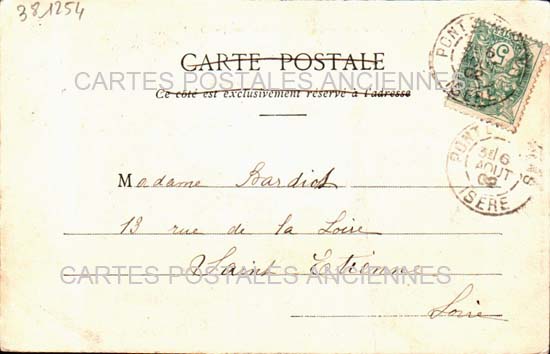 381254
CARTE POSTALE
CARTES POSTALES ANCIENNES
Ce côté est exclusivement réservé à l'adresse
PONT
ISÈRE
5
PONT
6
AOUT
ISÈRE
Madame Bardiot
13 rue de la Loire
Saint Etienne
CARTES POSTALES ANCIENNES
Loire